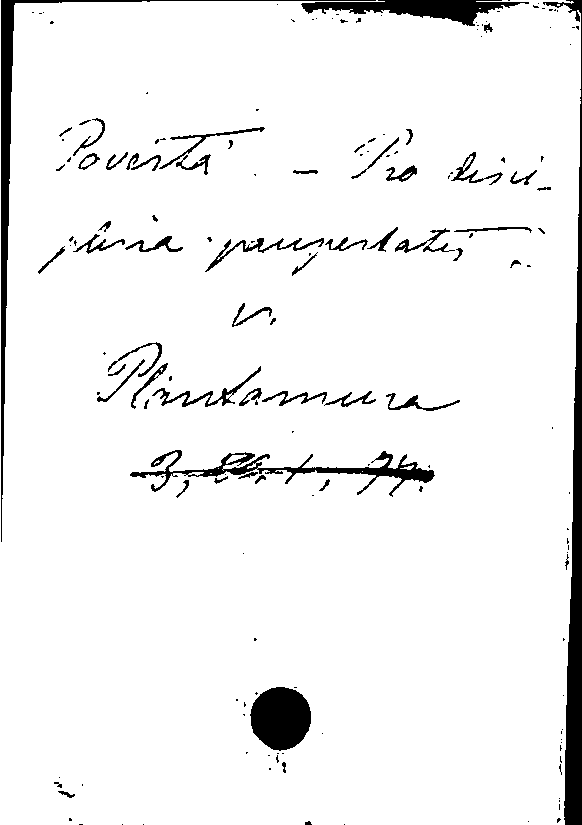 Povertà - Pro disci-
plina paupertatis
v.
Plantamura
3, 26, 1, 74.